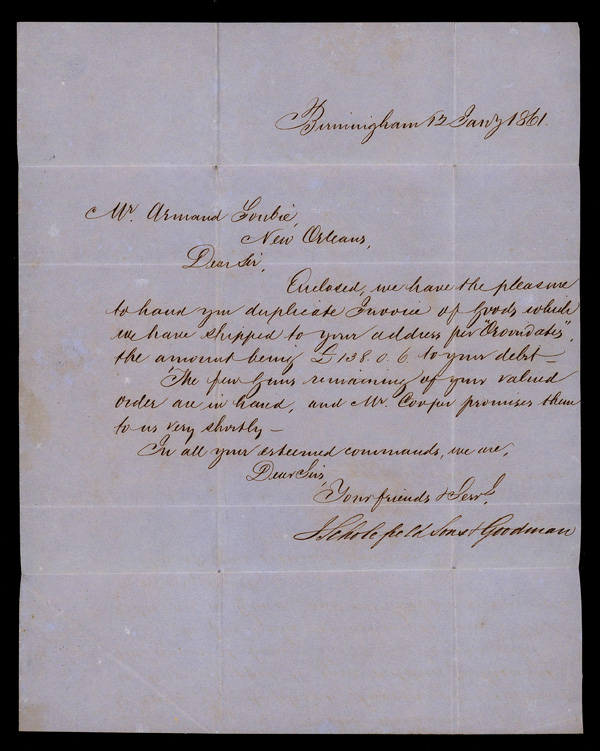 Birmingham 12 Jan'y 1861.
Mr. Armand Soubie,
New Orleans,
Dear Sir,
Enclosed, we have the pleasure
to hand you duplicate Invoice of Goods which
we have shipped to your address per "Oroondates",
the amount being £138.0.6 to your debt—
The few Guns remaining of your valued
order are in hand, and Mr. Cooper promises them
to us very shortly—
In all your esteemed commands, we are,
Dear Sir,
Your friends & Servts.
J Scholefield Sons & Goodman